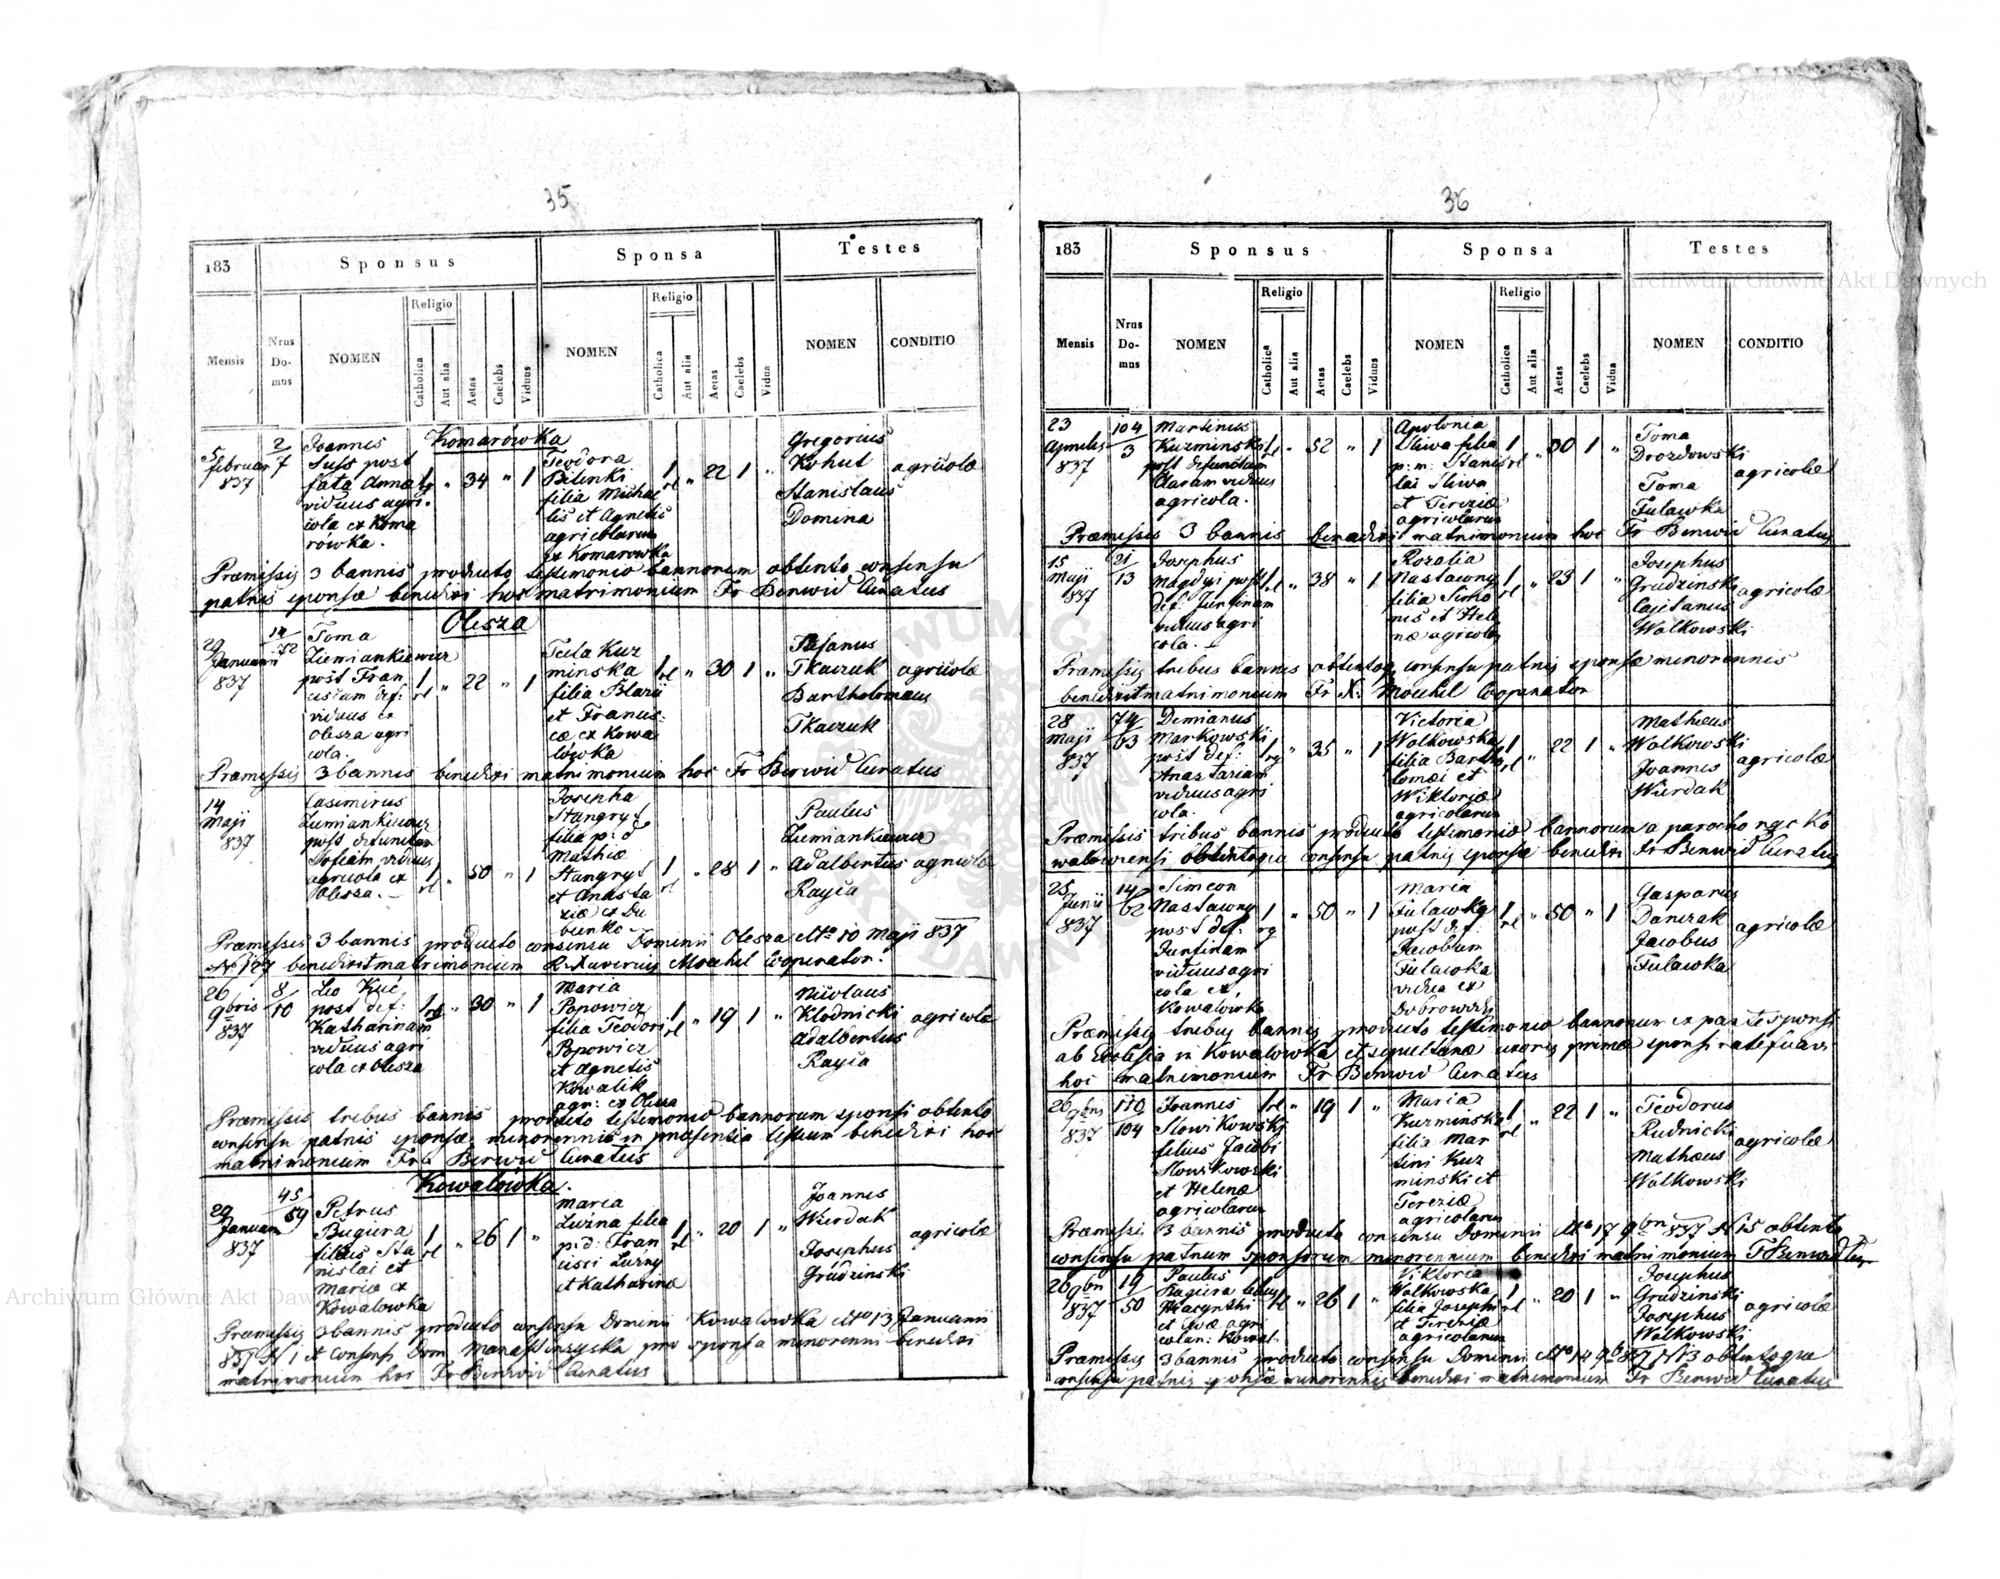 35
183
Sponsus
Sponsa
Testes
Mensis
Nrus Domus
NOMEN
Religio
Catholica
Aut alia
Aetas
Caelebs
Viduus
NOMEN
Religio
Catholica
Aut alia
Aetas
Caelebs
Vidua
NOMEN
CONDITIO
Komarówka
5 februar 837
2/7
Joannes
post
fata Annae
viduus agri
cola ex Koma
rówka.
34 " 1
Teodora
Bilenki
filia Michae
lis et Agnetis
agricolarum
ex Komarowka
22 1 "
Gregorius
Kohut
Stanislaus
Domina
agricolæ
Præmissis 3 bannis producto testimonio bannorum obtento consensu
patris sponsæ benedixi hoc matrimonium Fr Berwid Curatus
Olesza
29 Januarii 837
Toma
Ziemiankiewicz
post Fran
ciscam def:
viduus ex
Olesza agri
cola.
22 " 1
Tecla Kuz
minska
filia Blasii
et Francis
cæ ex Kowa
lówka
30 1 "
Tkaczuk
Bartholomaeus
Tkaczuk
agricolæ
Præmissis 3 bannis benedixi matrimonium hoc Fr Berwid Curatus
14 Maji 837
Casimirus
Ziemiankiewicz
post defunctam
viduus
agricola ex
Olesza.
50 " 1
Josepha
filia p: d
Mathiæ
et Anasta
ziæ ex Du
bienko
28 1 "
Paulus
Ziemiankiewicz
Adalbertus
Rayca
agricolæ
Præmissis 3 bannis producto consensu Dominii Olesza dtto 10 Maji 837
N 127 benedixit matrimonium R. Xaverius Mochel Cooperator.
26 9bris 837
8/10
Leo Kuć
post def:
Katharinam
viduus agri
cola ex Olesza
30 " 1
Maria
Popowicz
filia Teodori
Popowicz
et Agnetis
Kowalik
agr: ex Olesza
19 1 "
Nicolaus
Klodnicki
Adalbertus
Rayca
agricolæ
Præmissis tribus bannis producto testimonio bannorum sponsi obtento
consensu patris sponsæ minorennis in præsentia testium benedixi hoc
matrimonium Fr Berwid Curatus
Kowalówka.
29 Januarii 837
45/59
Petrus
Bugiera
filius Sta
nislai et
Mariæ ex
Kowalowka
26 1 "
Maria
Luzna filia
p: d: Fran
cisci Luzny
et Katharinæ
20 1 "
Joannes
Wierdak
Josephus
Grudzinski
agricolæ
Præmissis 3 bannis producto consensu Dominii Kowalowka dtto 13 Januarii
837 N 1 et consensu Dom pro sponsa minorenni benedixi
matrimonium hoc Fr Berwid Curatus
36
183
Sponsus
Sponsa
Testes
Mensis
Nrus Domus
NOMEN
Religio
Catholica
Aut alia
Aetas
Caelebs
Viduus
NOMEN
Religio
Catholica
Aut alia
Aetas
Caelebs
Vidua
NOMEN
CONDITIO
23 Aprilis 837
104/3
Martinus
Kuzminski
post defunctam
Claram viduus
agricola.
52 " 1
Apolonia
Sliwa filia
p: m: Stanis
lai Sliwa
et Tereziæ
agricolarum
30 1 "
Toma
Drozdowski
Toma
Fulawka
agricolæ
Præmissis 3 bannis benedixi matrimonium hoc Fr Berwid Curatus
15 Maji 837
21/13
Josephus
Magdyj post
def: Justinam
viduus agri
cola.
38 " 1
Rozalia
Nastawny
filia Simo
nis et Hele
næ agricolar
23 1 "
Josephus
Grudzinski
Cajetanus
Walkowski
agricolæ
Præmissis tribus bannis obtentoq consensu patris sponsæ minorennis
benedixit matrimonium Fr X: Mochel Cooperator
28 Maji 837
74/63
Demianus
Markowski
post def:
Anastasiam
viduus agri
cola.
35 " 1
Victoria
Walkowska
filia Bartho
lomæi et
Wiktoriæ
agricolarum
22 1 "
Matheus
Walkowski
Joannes
Wierdak
agricolæ
Præmissis tribus bannis producto testimonio bannorum a parocho r. g. c. Ko
walowiensi obtentoque consensu patris sponsæ benedixi Fr Berwid Curatus
25 Junii 837
14/62
Simeon
Nastawny
post def:
Justinam
viduus agri
cola ex
Kowalowka
50 " 1
Maria
Fulawka
post def:
Jacobum
Fulawka
vidua ex
Dobrowody
50 " 1
Gasparus
Danczak
Jacobus
Fulawka
agricolæ
Præmissis tribus bannis producto testimonio bannorum ex parte sponsi
ab Ecclesia in Kowalowka et sepulturæ uxoris primæ sponsi
hoc matrimonium Fr Berwid Curatus
26 9bris 837
110/104
Joannes
Slowikowski
filius Jacobi
Slowikowski
et Helenæ
agricolarum
19 1 "
Maria
Kuzminska
filia Mar
tini Kuz
minski et
Tereziæ
agricolarum
22 1 "
Teodorus
Rudnicki
Matheus
Walkowski
agricolæ
Præmissis 3 bannis producto consensu Dominii dtto 17 9bris 837 N 15 obtento
consensu patrum sponsorum minorennium benedixi matrimonium F Berwid Cur
26 9bris 837
19/50
Paulus
Bugiera filius
Hiacynthi
et Evæ agri
colar: Kowal.
26 1 "
Viktoria
Walkowska
filia Josephi
et Tereziæ
agricolarum
20 1 "
Josephus
Grudzinski
Josephus
Walkowski
agricolæ
Præmissis 3 bannis producto consensu Dominii dtto 14 9bris 837 N 13 obtentoque
consensu patris sponsæ minorennis benedixi matrimonium Fr Berwid Curatus
Archiwum Główne Akt Dawnych
Archiwum Główne Akt Dawnych